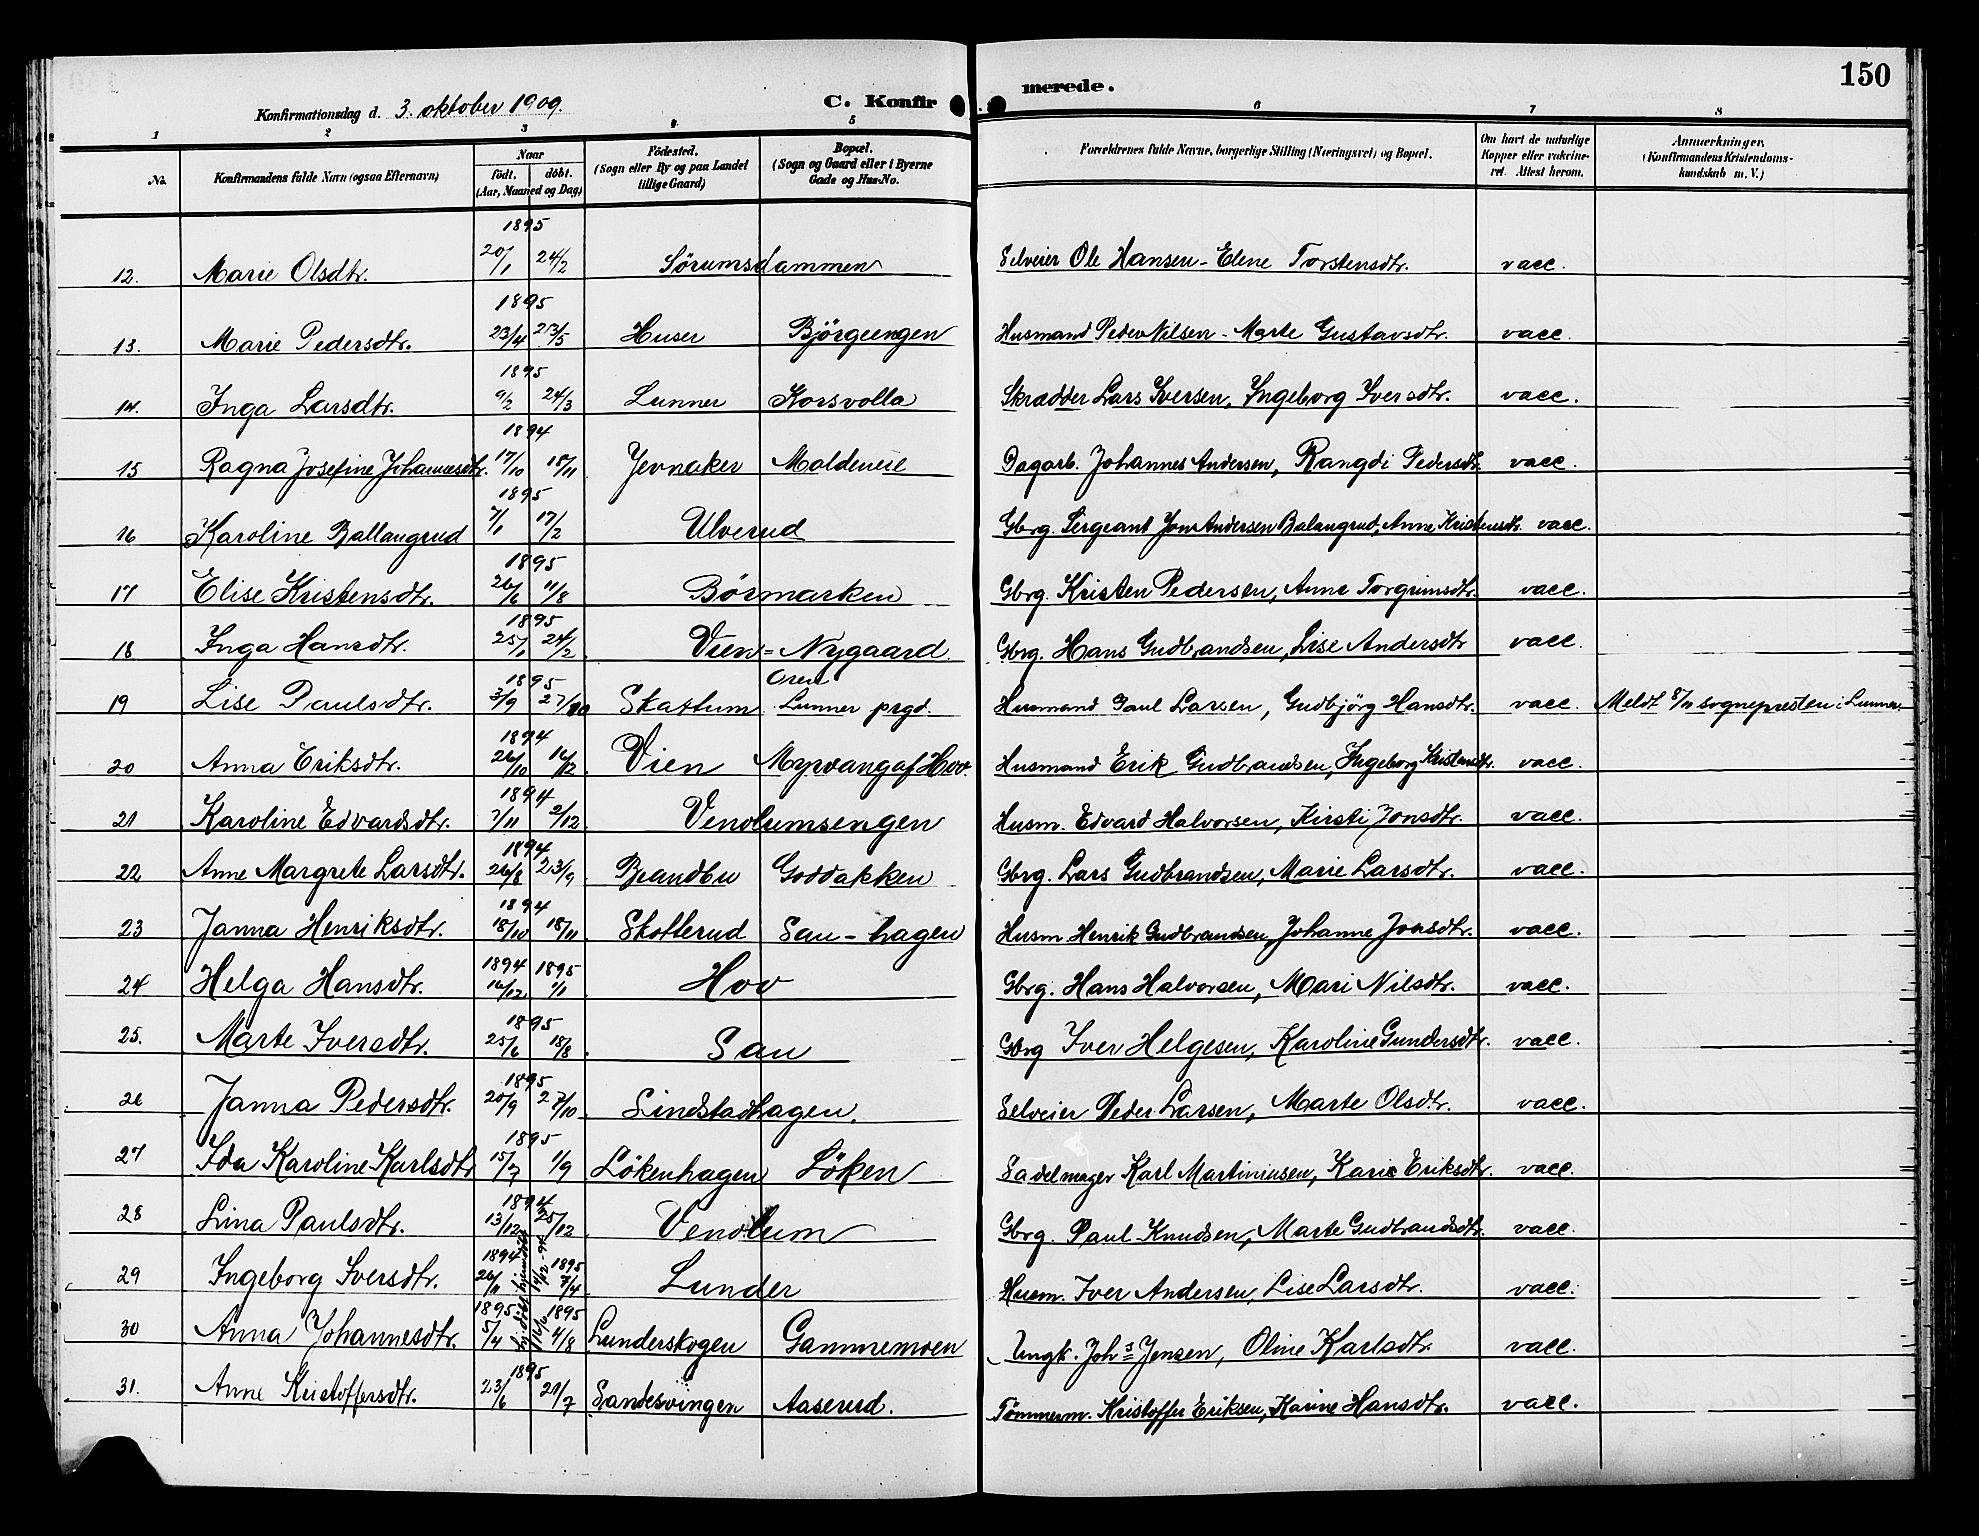 150
Konfirmationsdag d. 3. oktober 1909.
C. Konfirmerede.
1 2 3 4 5 6 7 8
No. Konfirmandens fulde Navn (ogsaa Efternavn) Naar födt. döbt. (Aar, Maaned og Dag) Födested. (Sogn eller By og paa Landet tillige Gaard) Bopæl. (Sogn og Gaard eller i Byerne Gade og Hus-No. Forældrenes fulde Navne, borgerlige Stilling (Næringsvei) og Bopæl. Om havt de naturlige Kopper eller vakcineret. Attest herom. Anmærkninger, (Konfirmandens Kristendomskundskab m. V.)
1895
12. Marie Olsdtr. 20/1 24/2 Sörumsdammen Selveier Ole Hansen - Elene Torstensdtr. vacc.
1895
13. Marie Pedersdtr. 23/4 23/5 Huser Björgeengen Husmand Peder Nilsen - Marte Gustavsdtr. vacc.
1895
14. Inga Larsdtr. 9/2 24/3 Lunner Korsvolla Skrædder Lars Iversen, Ingeborg Iversdtr. vacc.
1894
15 Ragna Josefine Johannesdtr. 17/10 18/11 Jevnaker Moldeneie Dagarb. Johannes Andersen, Rangdi Pedersdtr. vacc.
1895
16 Karoline Ballangrud 7/1 17/2 Ulverud Gbrg. Sergeant Jon Andersen Balangrud, Anne Kristensdtr. vacc.
1895
17 Elise Kristensdtr. 26/6 11/8 Börmarken Gbrg. Kristen Pedersen, Anne Torgrimsdtr. vacc.
1895
18 Inga Hansdtr. 25/1 24/2 Vien - Nygaard Gbrg. Hans Gudbrandsen, Lise Andersdtr vacc.
1895 Oren
19 Lise Paulsdtr. 3/9 27/10 Skattum Lunner prgd. Husmand Paul Larsen, Gudbjörg Hansdtr. vacc. Meldt 8/11 sognepresten i Lunner.
1894
20 Anna Eriksdtr. 26/10 16/12 Vien Myrvang af Hov. Husmand Erik Gudbrandsen, Ingeborg Kristensdtr. vacc.
1894
21 Karoline Edvardsdtr. 7/11 2/12 Venolumsengen Husm. Edvard Halvorsen, Kirsti Jonsdtr. vacc.
1894
22 Anne Margrete Larsdtr. 26/8 23/9 Brandbu Goddakken Gbrg. Lars Gudbrandsen, Marie Larsdtr. vacc.
1894
23 Janna Henriksdtr. 18/10 18/11 Skotterud San-hagen Husm. Henrik Gudbrandsen, Johanne Jonsdtr. vacc.
1894 1895
24 Helga Hansdtr. 16/12 1/1 Hov Gbrg. Hans Halvorsen, Mari Nilsdtr. vacc.
1895
25. Marte Iversdtr. 25/6 18/8 San Gbrg Iver Helgesen, Karoline Gundersdtr. vacc.
1895
26 Janna Pedersdtr. 20/9 27/10 Lindstadhagen. Selveier Peder Larsen, Marte Olsdtr. vacc.
1895
27 Ida Karoline Karlsdtr 15/7 1/9 Lökenhagen Löken Sadelmager Karl Martiniusen, Karie Eriksdtr. vacc.
1894
28 Lina Paulsdtr. 13/12 25/12 Venolum Gbrg. Paul Knudsen, Marte Gudbrandsdtr. vacc.
1894 1895
29 Ingeborg Iversdtr. 26/11 14/12-94 7/4 Lunder Husm. Iver Andersen, Lise Larsdtr. vacc.
1895 1895
30 Anna Johannesdtr. 5/4 4/8 Lunderskogen Gammemoen Ungk. Joh.s Jensen, Oline Karlsdtr. vacc.
1895
31. Anne Kristoffersdtr. 23/6 21/7 Sandesvingen Aaserud. Tömmerm. Kristoffer Eriksen, Karine Hansdtr. vacc.